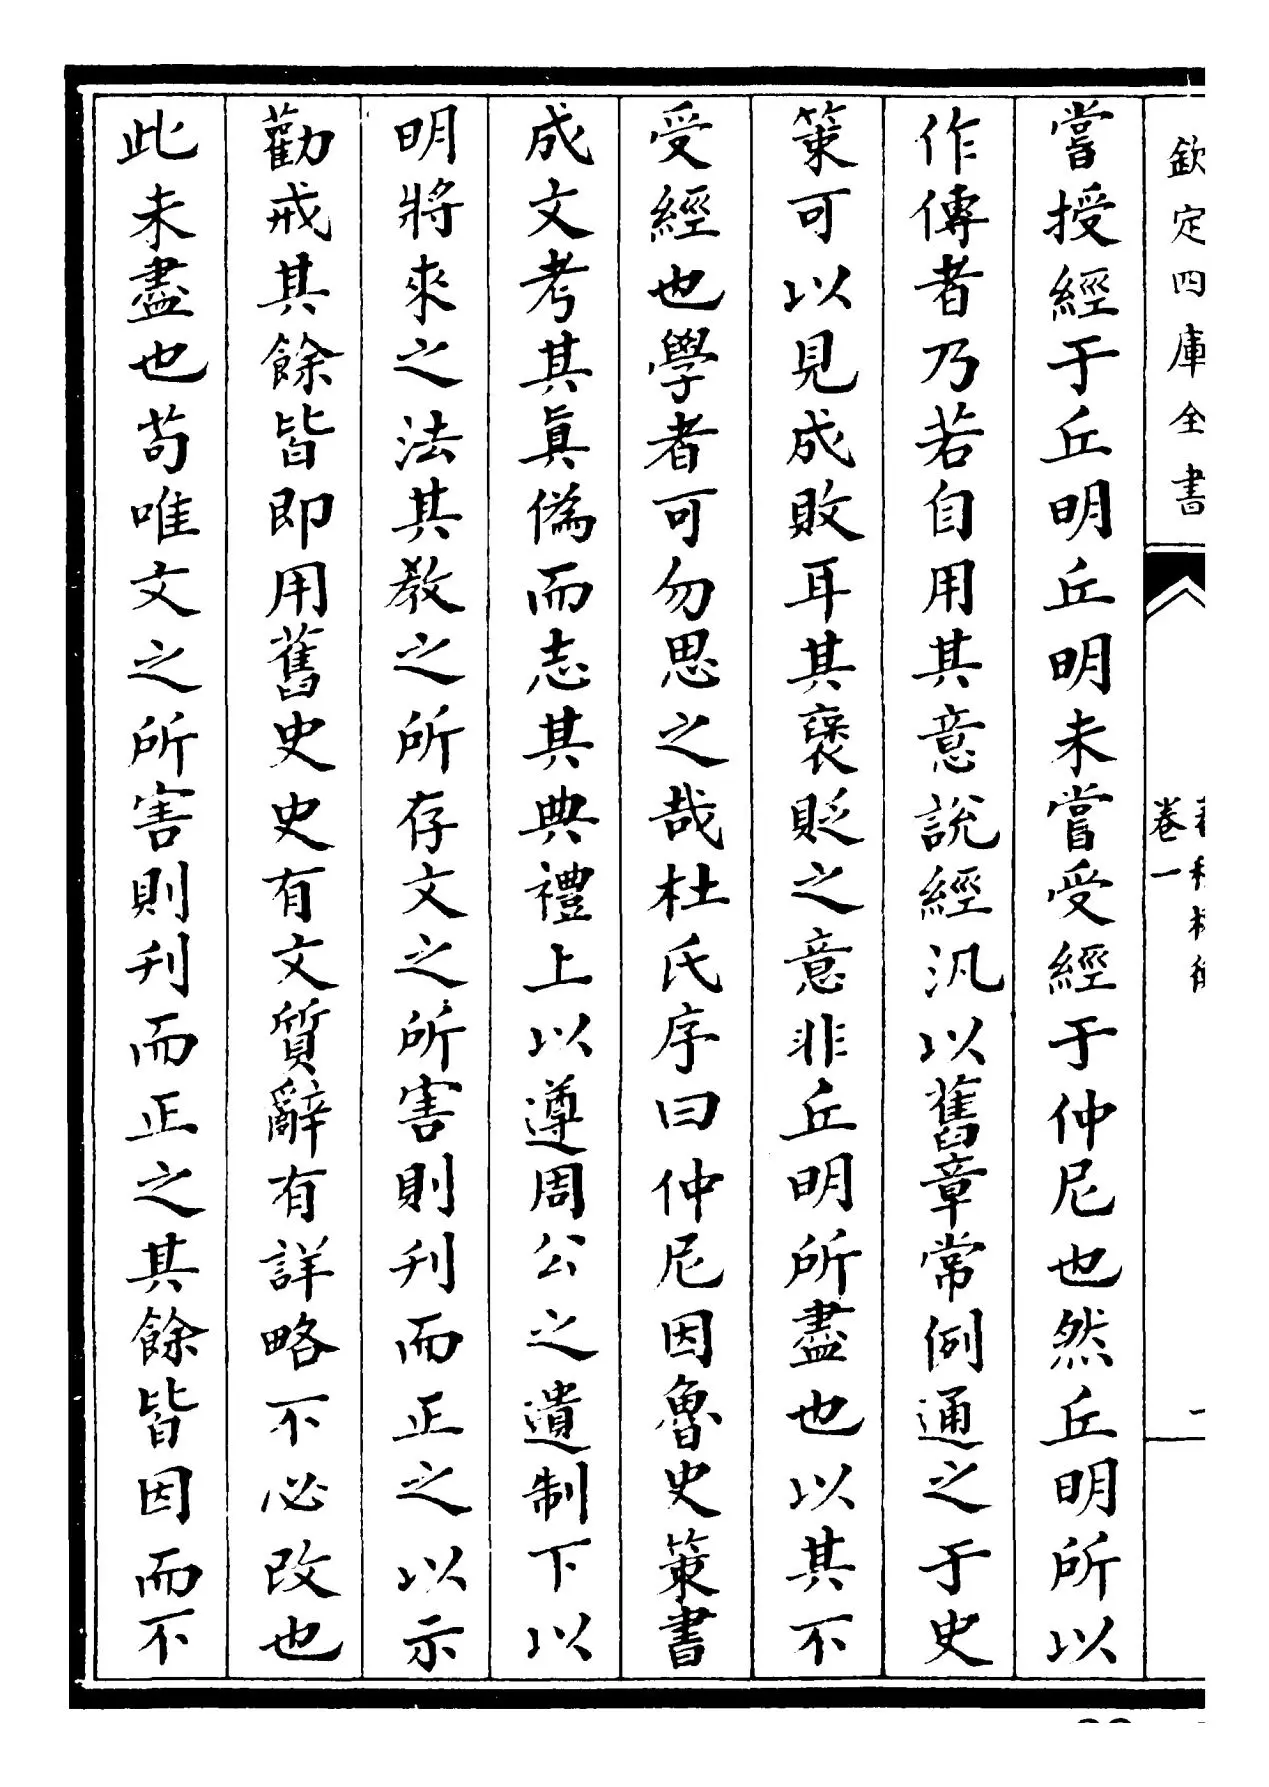 欽定四庫全書
卷一
嘗授經于丘明丘明未嘗受經于仲尼也然丘明所以
作傳者乃若自用其意說經汎以舊章常例通之于史
策可以見成敗耳其褒貶之意非丘明所盡也以其不
受經也學者可勿思之哉杜氏序曰仲尼因魯史策書
成文考其眞偽而志其典禮上以遵周公之遺制下以
明將來之法其教之所存文之所害則刋而正之以示
勸戒其餘皆即用舊史史有文質辭有詳略不必改也
此未盡也苟唯文之所害則刋而正之其餘皆因而不